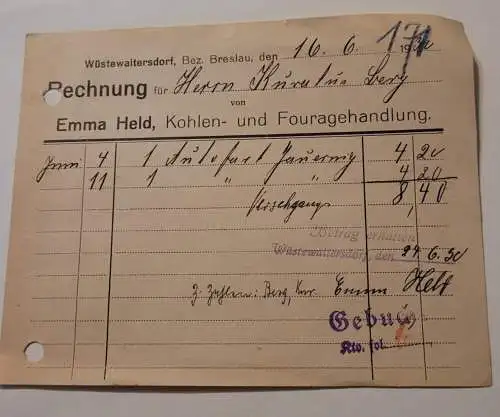 171
Wüstewaltersdorf, Bez. Breslau, den 16. 6. 19
Rechnung für Herrn Kuratus Berg
von
Emma Held, Kohlen- und Fouragehandlung.
Juni 4 1 Autofart Jauernig 4 20
11 1 " " 4 20
8,40
Betrag erhalten
Wüstewaltersdorf, den 24. 6. 30
Z. Zahlen: Berg, Kur. Emma Held
Gebucht
Kto. fol.